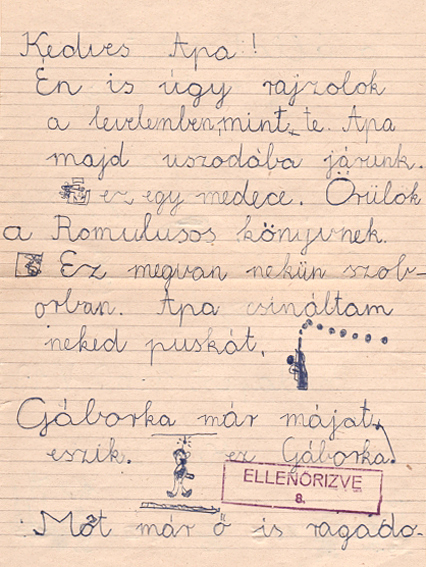 Kedves Apa!
Én is úgy rajzolok
a levelemben, mint te. Apa
majd uszodába járunk.
ez egy medece. Örülök
a Romulusos könyvnek.
Ez megvan nekün szob-
orban. Apa csináltam
neked puskát.
Gáborka már májat
eszik. ez Gáborka.
ELLENŐRIZVE
8.
Möt már ő is ragado-